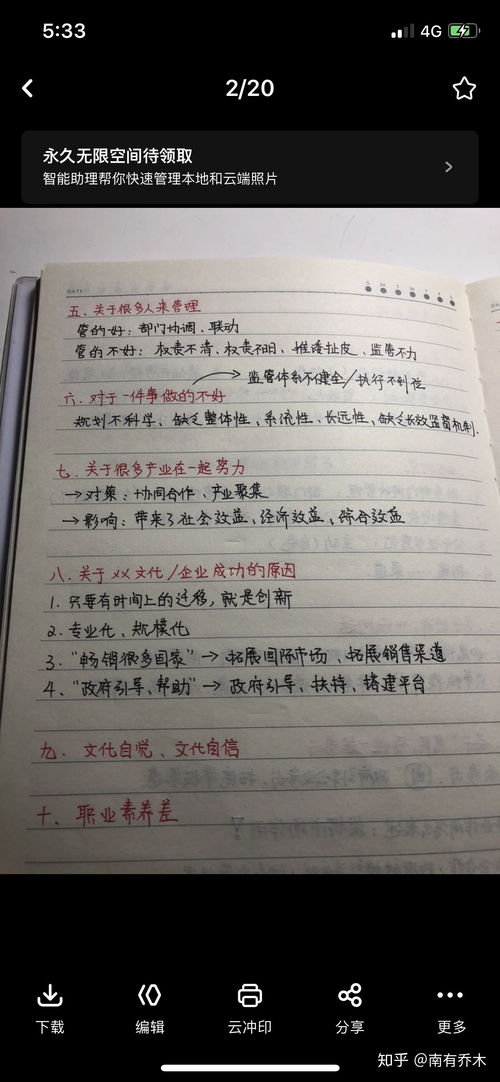 5:33
4G
2/20
永久无限空间待领取
智能助理帮你快速管理本地和云端照片
DATE
S M T W T F S
五、关于很多人来管理
管的好：部门协调、联动
管的不好：权责不清、权责不明、推诿扯皮、监管不力
→监管体系不健全/执行不到位
六、对于一件事做的不好
规划不科学、缺乏整体性、系统性、长远性、缺乏长效监督机制.
七、关于很多产业在一起努力
→对策：协同合作、产业聚集
→影响：带来了社会效益、经济效益、综合效益
八、关于XX文化/企业成功的原因
1. 只要有时间上的迁移，就是创新
2. 专业化、规模化
3. “畅销很多国家”→拓展国际市场、拓展销售渠道
4. “政府引导、帮助”→政府引导、扶持、搭建平台
九、文化自觉、文化自信
十、职业素养差
下载
编辑
云冲印
分享
更多
知乎 @南有乔木